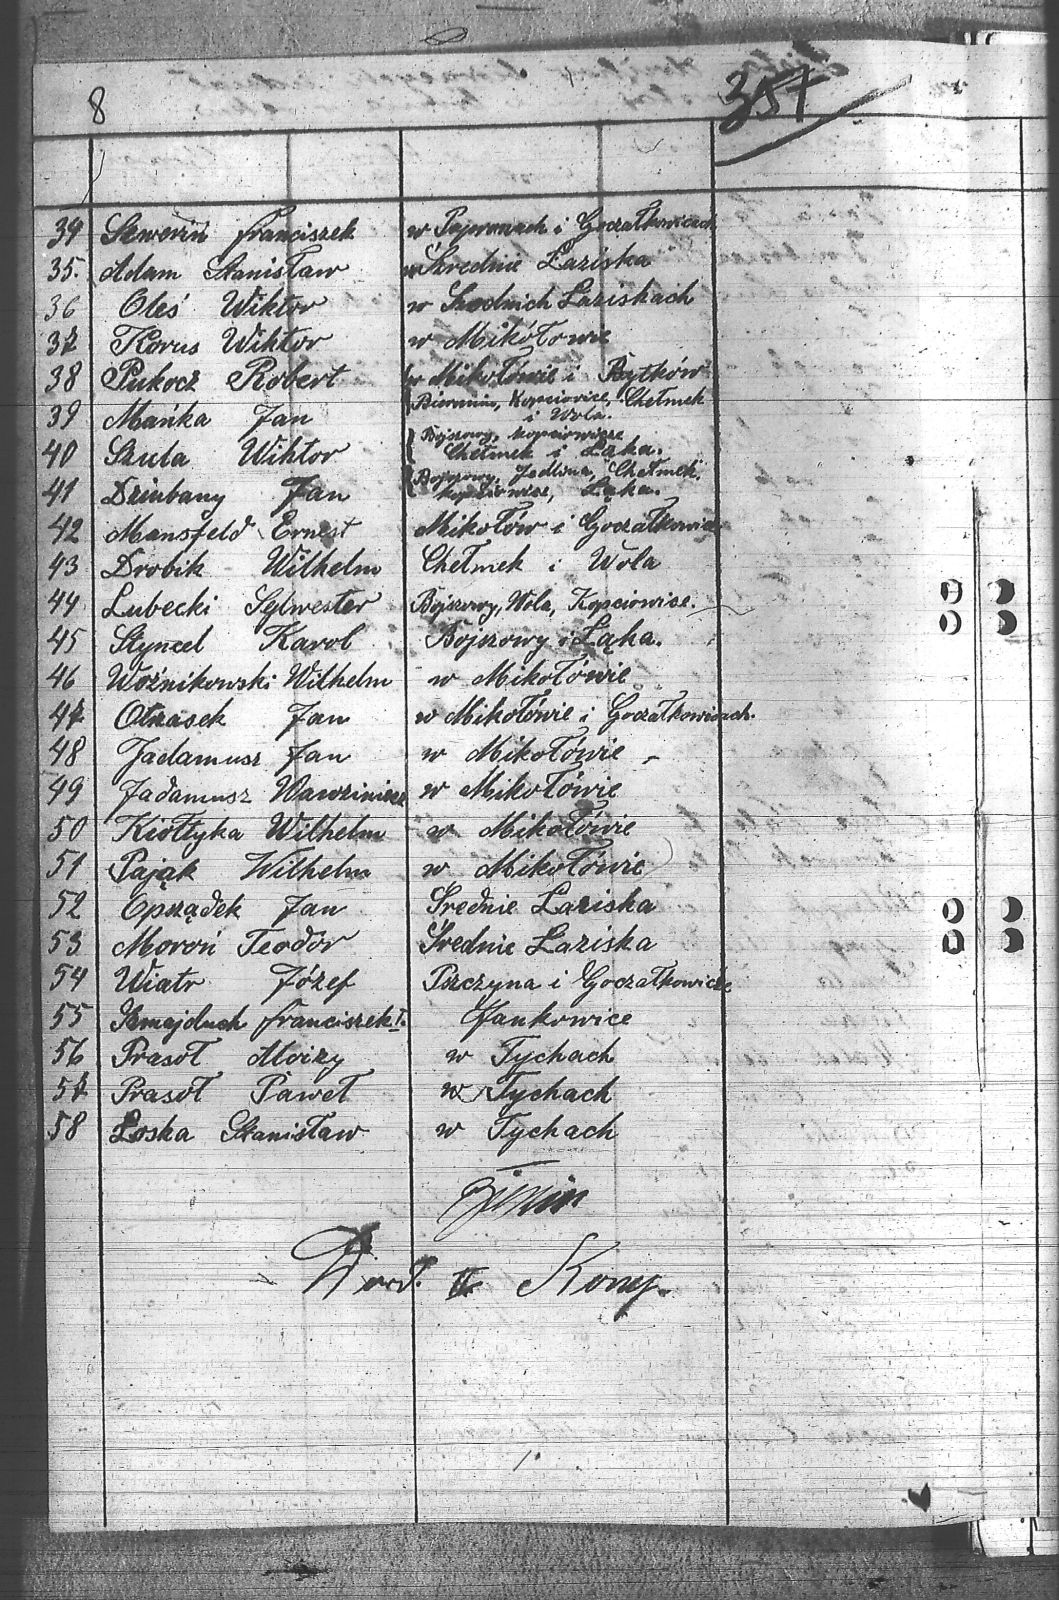 8
357
34 Szweriń Franciszek w Pajwonach i Goczałkowicach
35. Adam Stanisław w Szrednie Łaziska
36 Oleś Wiktor w Szednich Łaziskach
37 Korus Wiktor w Mikółowie
38 Pukocz Robert w Mikołówie i Bytków
39 Mańka Jan Bierunin, Kopciowice, Chełmek
i Wola.
40 Szula Wiktor Bojszowy, Kopciowicze
Chełmek i Łąka.
41 Dziubany Jan Bojszowy, Jedlina, Chełmek,
Kopciowice, Łąka.
42 Mansfeld Ernest Mikołów i Goczałkowice
43 Drobik Wilhelm Chełmek i Wola
44 Lubecki Sylwester Bojszowy, Wola, Kopciowice.
45 Styncel Karol Bojszowy i Łąka.
46 Woźnikowski Wilhelm w Mikołówie
47 Otrzasek Jan w Mikołówie i Goczałkowicach.
48 Jadamusz Jan w Mikołówie
49 Jadamusz Wawziniec w Mikołówie
50 Kiołtyka Wilhelm w Mikołówie
51 Pająk Wilhelm w Mikołówie
52 Oprządek Jan Srednie Łaziska
53 Moroń Teodor Średnie Łaziska
54 Wiatr Józef Pszczyna i Goczałkowicze
55 Szmajduch Franciszek I. Jankowice
56 Prasoł Aloizy w Tychach
57 Prasoł Paweł w Tychach
58 Loska Stanisław w Tychach
Dowd. II Komp.